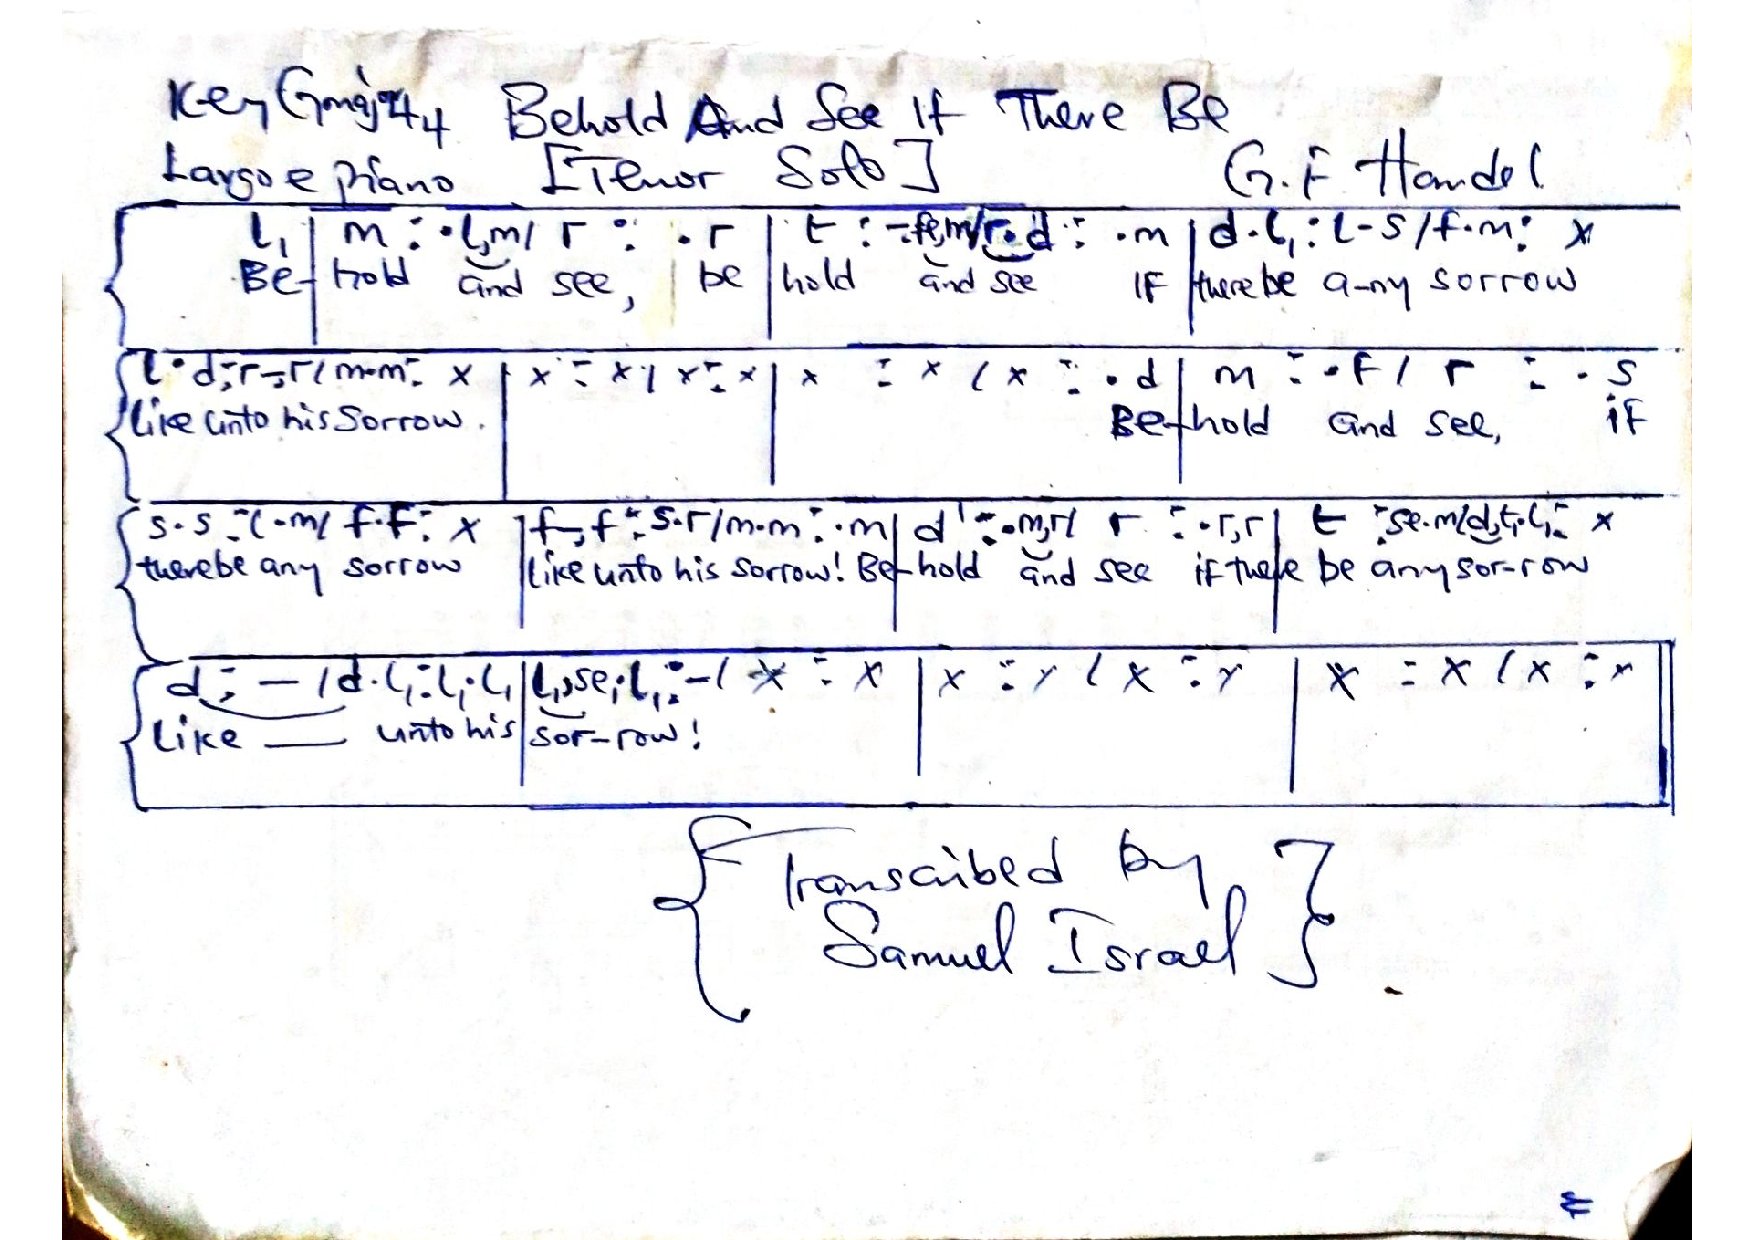 Key G major 4/4 Behold And See If There Be
Largo e piano [Tenor Solo] G.F Handel
l₁ | m : .l,m / r : .r | t : -.fe,m / r.d : .m | d.l₁ : l-s / f.m : x
Be- hold and see, be hold and see IF there be a-ny sorrow
l.d : r-,r / m.m : x | x : x / x : x | x : x / x : .d | m : .f / r : .s
like unto his Sorrow. Be- hold and see, if
s.s : l.m / f.f : x | f-,f : s.r / m.m : .m | d' : .m,r / r : .r,r | t : se.m / d,t₁.l₁ : x
there be any sorrow like unto his sorrow! Be- hold and see if there be any sor-row
d : - / d.l₁ : l₁.l₁ | l₁,se₁.l₁ : - / x : x | x : x / x : x | x : x / x : x
Like — unto his sor-row!
{ Transcibed by
Samuel Israel }